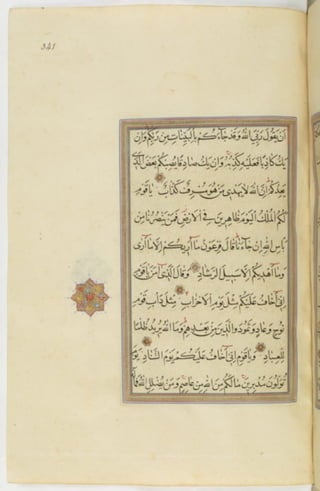 341
اَنْ يَقُولَ رَبِّيَ اللهُ وَقَدْ جَاءَكُمْ بِالْبَيِّنَاتِ مِنْ رَبِّكُمْ وَاِنْ
يَكُ كَاذِبًا فَعَلَيْهِ كَذِبُهُ وَاِنْ يَكُ صَادِقًا يُصِبْكُمْ بَعْضُ الَّذِي
يَعِدُكُمْ اِنَّ اللهَ لَا يَهْدِي مَنْ هُوَ مُسْرِفٌ كَذَّابٌ يَا قَوْمِ
لَكُمُ الْمُلْكُ الْيَوْمَ ظَاهِرِينَ فِي الْاَرْضِ فَمَنْ يَنْصُرُنَا مِنْ
بَاْسِ اللهِ اِنْ جَاءَنَا قَالَ فِرْعَوْنُ مَا اُرِيكُمْ اِلَّا مَا اَرَى
وَمَا اَهْدِيكُمْ اِلَّا سَبِيلَ الرَّشَادِ وَقَالَ الَّذِي آمَنَ يَا قَوْمِ
اِنِّي اَخَافُ عَلَيْكُمْ مِثْلَ يَوْمِ الْاَحْزَابِ مِثْلَ دَاْبِ قَوْمِ
نُوحٍ وَعَادٍ وَثَمُودَ وَالَّذِينَ مِنْ بَعْدِهِمْ وَمَا اللهُ يُرِيدُ ظُلْمًا
لِلْعِبَادِ وَيَا قَوْمِ اِنِّي اَخَافُ عَلَيْكُمْ يَوْمَ التَّنَادِ يَوْمَ
تُوَلُّونَ مُدْبِرِينَ مَا لَكُمْ مِنَ اللهِ مِنْ عَاصِمٍ وَمَنْ يُضْلِلِ اللهُ فَمَا لَهُ